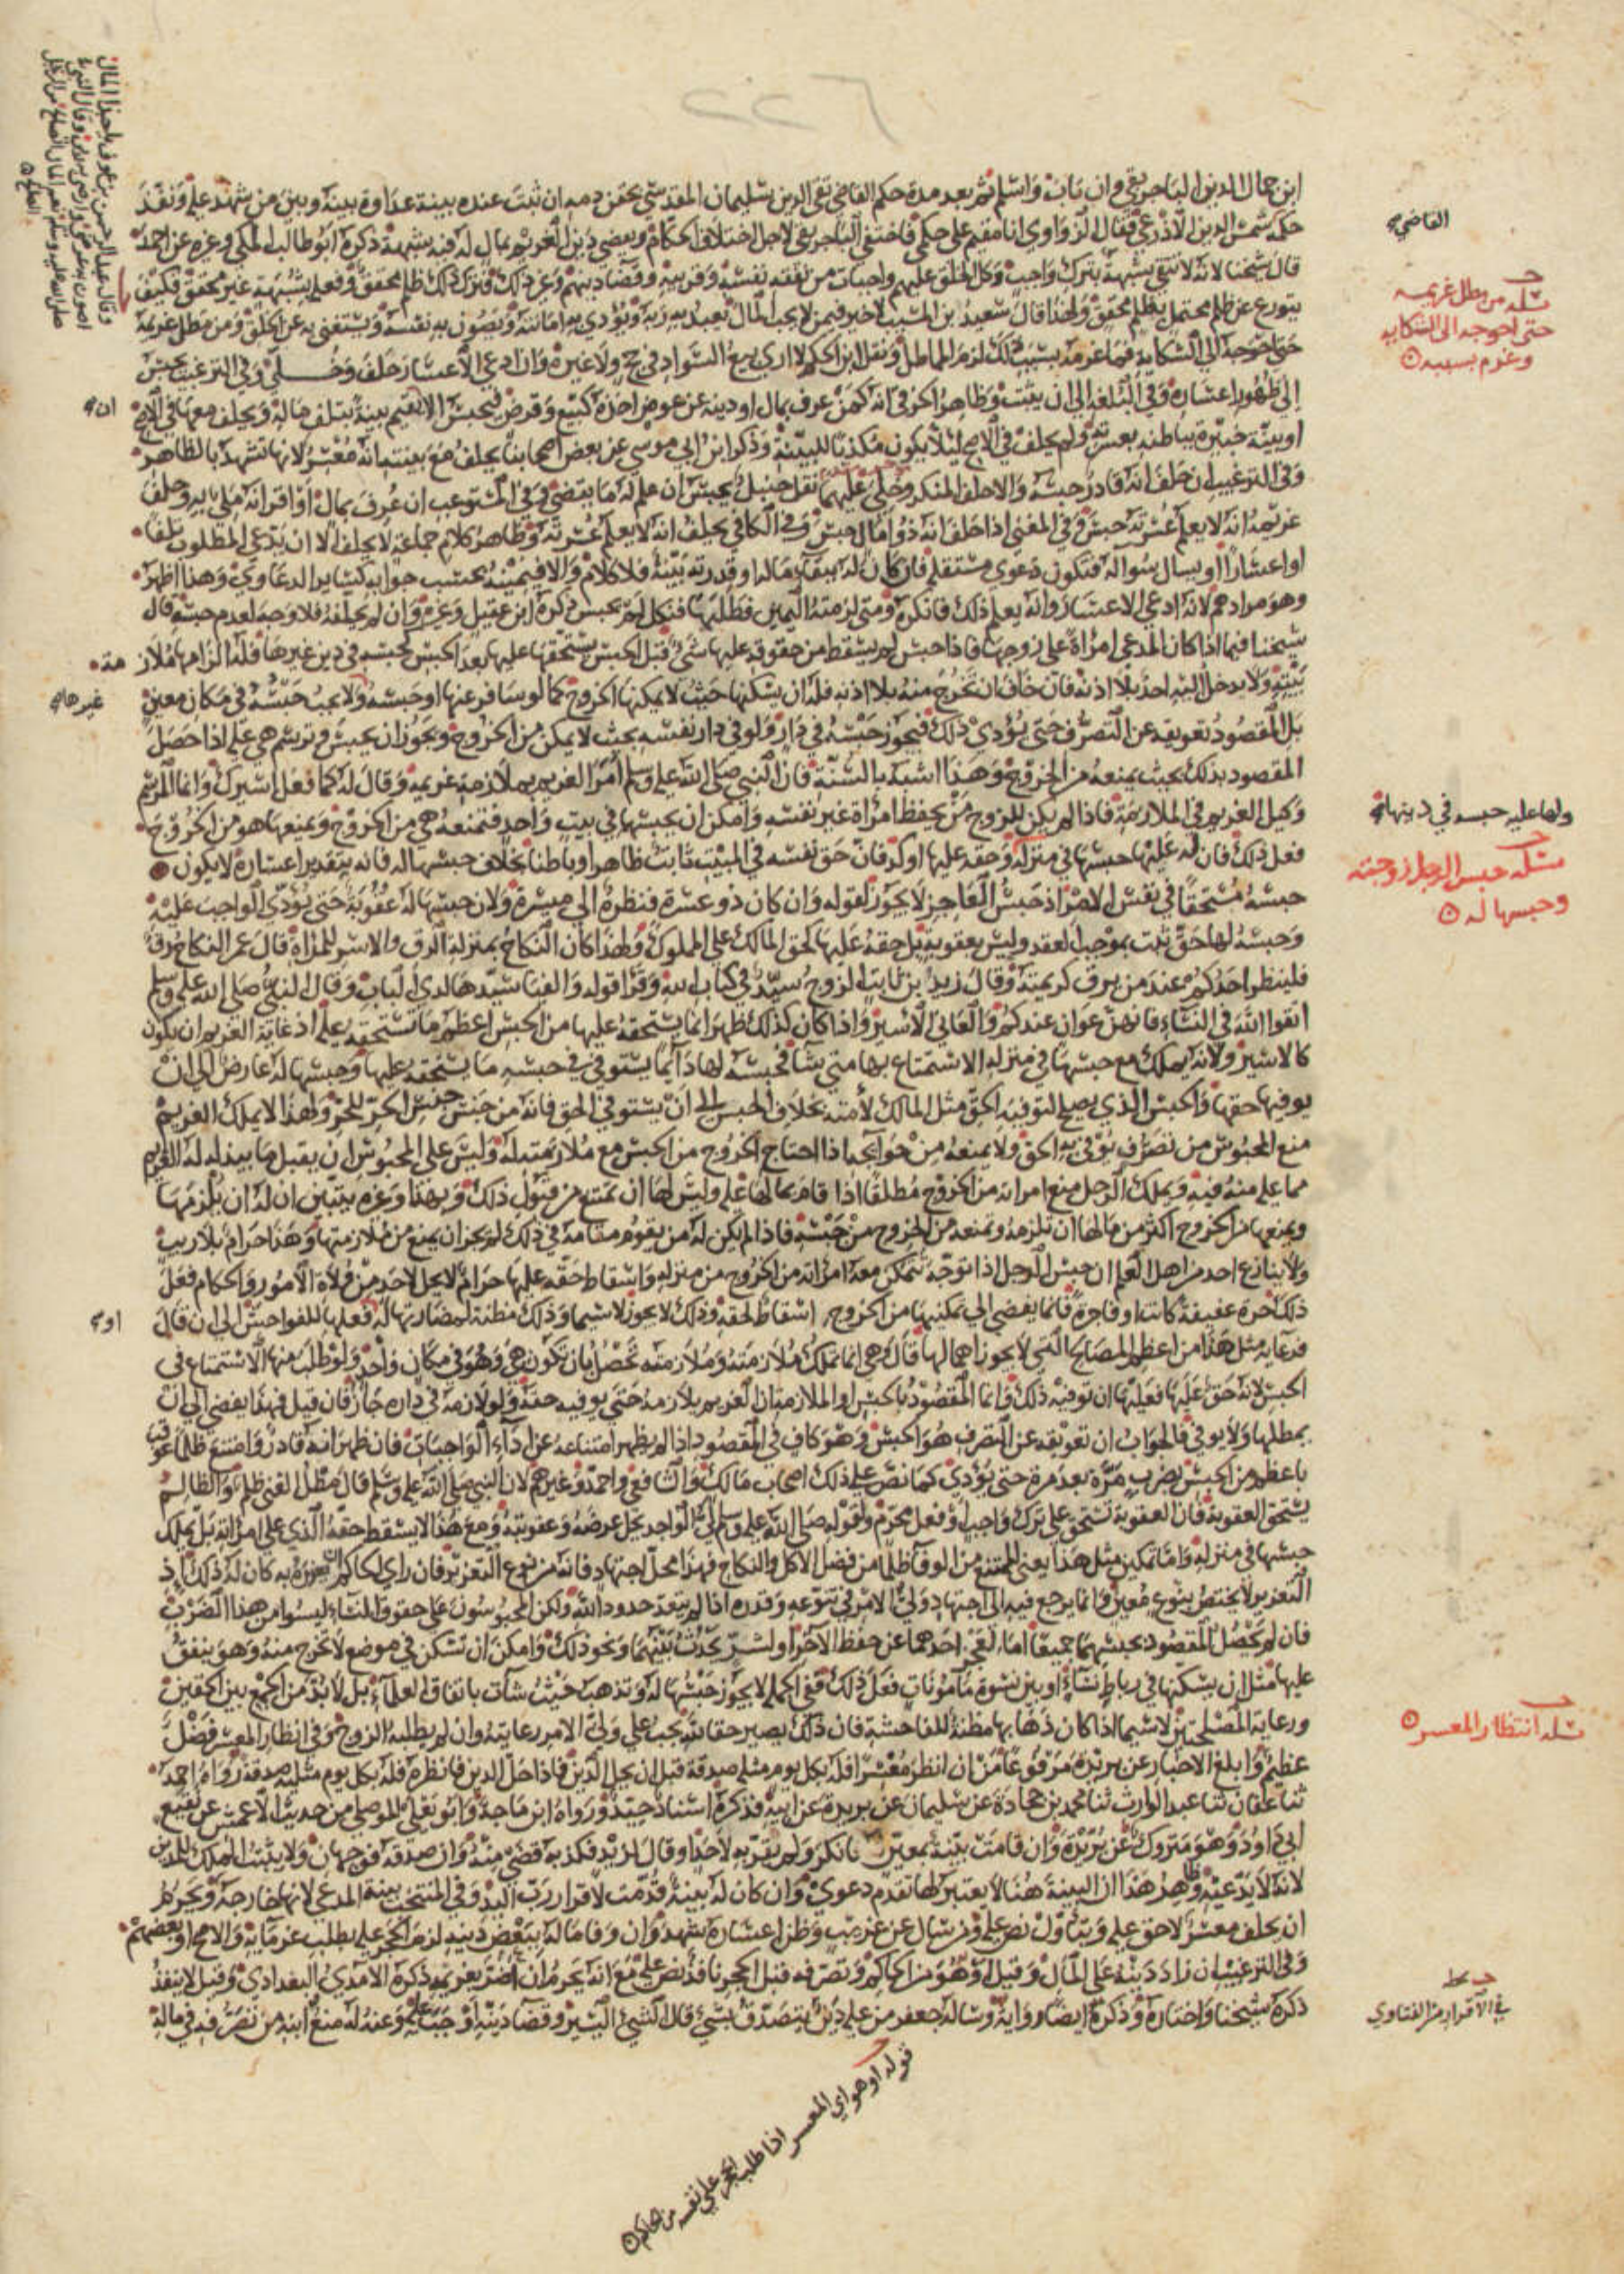 ابن جمال الدين الباجريقي وان تاب واسلم ثم بعد مدة حكم القاضي تقي الدين سليمان المقدسي بحقن دمه ان ثبت عنده بينة عداوة بينه وبين من شهد عليه ونفذ
حكمه شمس الدين الاذرعي فقال الزواوي انا مقيم على حكمي فاختفى الباجريقي لاجل اختلاف الحكام ويقضي دين الغريم بمال له فيه شبهة ذكره ابو طالب المكي وغيره عن احمد
قال شيخنا لانه لا تتقى شبهة بترك واجب وكل الخلق عليهم واجبات من نفقة نفسه وقريبه وقضا دينهم وغير ذلك فترك ذلك ظلم محقق وفعله بشبهة غير محقق فكيف
يتورع عن ظلم محتمل بظلم محقق ولهذا قال سعيد بن المسيب لا خير فيمن لا يحب المال يعبد به ربه ويؤدي به امانته ويصون به نفسه ويستغني به عن الخلق ومن مطل غريمه
حتى احوجه الى الشكاية فما غرمه بسبب ذلك لزم المماطل ونقل ابن الحكم لا ارى بيع السواد في حج ولا غيره وان ادعى الاعسار حلف وخلي وفي الترغيب يحبس
الى ظهور اعساره وفي البلغة الى ان يثبت وظاهر الخرقي انه كمن عرف بمال او دينه عن عوض اخذه كبيع وقرض فيحبس الا ان يقيم بينة بتلف ماله ويحلف معها في الاصح
او بينة خبيرة بباطنه بعسرته ولم يحلف في الاصح لئلا يكون مكذبا للبينة وذكر ابن ابي موسى عن بعض اصحابنا يحلف مع بينته انه معسر لانها تشهد بالظاهر
وفي الترغيب ان حلف انه قادر حبسه والا حلف المنكر وخلي عليهما نقل حنبل يحبس ان علم له ما يقضي وفي المستوعب ان عرف بمال او اقر انه مليء به وحلف
غريمه انه لا يعلم عسرته حبس وفي المغني اذا حلف انه ذو مال حبس وفي الكافي يحلف انه لا يعلم عسرته وظاهر كلام جماعة لا يحلف الا ان يدعي المطلوب تلفا
او اعسارا او يسال سواله فتكون دعوى مستقلة فان كان له ببقاء ماله او قدرته بينة فلا كلام والا فيمينه بحسب جوابه كساير الدعاوي وهذا اظهر
وهو مرادهم لانه ادعى الاعسار وانه يعلم ذلك فانكره ومتى لزمته اليمين فطلبها فنكل لم يحبس ذكره ابن عقيل وغيره وان لم يحلفه فلا وجه لعدم حبسه قاله
شيخنا فيما اذا كان المدعي امراة على زوجها فاذا حبس لم يسقط من حقوقه عليها شيء قبل الحبس يستحقها عليها بعد الحبس كحبسه في دين غيرها فله الزامها ملازمة
بيته ولا يدخل اليه احد بلا اذنه فان خاف ان تخرج منه بلا اذنه فله ان يسكنها حيث لا يمكنها الخروج كما لو سافر عنها او حبسه غيرها ولا يجب حبسه في مكان معين
بل المقصود تعويقه عن التصرف حتى يؤدي ذلك فيجوز حبسه في دار ولو في دار نفسه بحيث لا يمكن من الخروج ويجوز ان يحبس وترسم هي عليه اذا حصل
المقصود بذلك بحيث يمنعه من الخروج وهذا اشبه بالسنة فان النبي صلى الله عليه وسلم امر الغريم بملازمة غريمه وقال له كما فعل اسيرك وانما المرسم
وكيل الغريم في الملازمة فاذا لم يكن للزوج من يحفظ امراة غير نفسه وامكن ان يحبسها في بيت واحد فتمنعه هي من الخروج ويمنعها هو من الخروج
فعل ذلك فان له عليها حبسها في منزله ولها عليه حبسه في دينها وحقه عليها اوكد فان حق نفسه في المبيت ثابت ظاهرا وباطنا بخلاف حبسها له فانه بتقدير اعساره لا يكون
حبسه مستحقا في نفس الامر اذ حبس العاجز لا يجوز لقوله وان كان ذو عسرة فنظرة الى ميسرة ولان حبسها له عقوبة حتى يؤدي الواجب عليه
وحبسه لها حق ثبت بموجب العقد وليس بعقوبة بل حقه عليها كحق المالك على المملوك ولهذا كان النكاح بمنزلة الرق والاسر للمراة قال عمر النكاح رق
فلينظر احدكم عند من يرق كريمته وقال زيد بن ثابت الزوج سيد في كتاب الله وقرا قوله والفيا سيدها لدى الباب وقال النبي صلى الله عليه وسلم
اتقوا الله في النساء فانهن عوان عندكم والعاني الاسير واذا كان كذلك ظهر انما يستحقه عليها من الحبس اعظم ما تستحقه عليه اذ غاية الغريم ان يكون
كالاسير ولانه يملك مع حبسها في منزله الاستمتاع بها متى شا فحبسه لها دائما يستوفي في حبسه ما يستحقه عليها وحبسها له عارض الى ان
يوفيها حقها والحبس الذي يصلح لتوفية الحق مثل المالك لأمته بخلاف الحبس الى ان يستوفي الحق فانه من جنس حبس الحر للحر ولهذا لا يملك الغريم
منع المحبوس من تصرف يوفي به الحق ولا يمنعه من حوائجه اذا احتاج الخروج من الحبس مع ملازمته له وليس على المحبوس ان يقبل ما يبذله له الغريم
مما عليه منة فيه ويملك الرجل منع امراته من الخروج مطلقا اذا قام بما لها عليه وليس لها ان تمتنع من قبول ذلك وبهذا وغيره يتبين ان له ان يلزمها
ويمنعها من الخروج اكثر من مالها ان تلزمه وتمنعه من الخروج من حبسه فاذا لم يكن له من يقوم مقامه في ذلك لم يجز ان يمنع من ملازمتها وهذا حرام بلا ريب
ولا ينازع احد من اهل العلم ان حبس الرجل اذا توجه تتمكن معه امراته من الخروج من منزله واسقاط حقه عليها حرام لا يحل لاحد من ولاة الامور والحكام فعل
ذلك حرة عفيفة كانت او فاجرة فانما يفضي الى تمكينها من الخروج اسقاط لحقه وذلك لا يجوز لاسيما وذلك مظنة لمضارتها له او فعلها للفواحش الى ان قال
فرعاية مثل هذا من اعظم المصالح التي لا يجوز اهمالها قال هي انما تملك ملازمته وملازمته تحصل بان تكون هي وهو في مكان واحد ولو طلب منها الاستمتاع في
الحبس لانه حق عليها فعليها ان توفيه ذلك وانما المقصود بالحبس او الملازمة ان الغريم يلازمه حتى يوفيه حقه ولو لازمه في داره جاز فان قيل فهذا يفضي الى ان
يمطلها ولا يوفي فالجواب ان تعويقه عن التصرف هو الحبس وهو كاف في المقصود اذا لم يظهر امتناعه عن اداء الواجبات فان ظهر انه قادر وامتنع ظلما عوقب
باعظم من الحبس بضرب مرة بعد مرة حتى يؤدي كما نص على ذلك اصحاب مالك والشافعي واحمد وغيرهم لان النبي صلى الله عليه وسلم قال مطل الغني ظلم والظالم
يستحق العقوبة فان العقوبة تستحق على ترك واجب او فعل محرم ولقوله صلى الله عليه وسلم لي الواجد يحل عرضه وعقوبته ومع هذا لا يسقط حقه الذي على امراته بل يملك
حبسها في منزله واما تمكين مثل هذا يعني الممتنع من الوفا ظلما من فضل الاكل والنكاح فهذا محل اجتهاد فانه من نوع التعزير فان راى الحاكم ان يعزره به كان له ذلك اذ
التعزير لا يختص بنوع معين وانما يرجع فيه الى اجتهاد ولي الامر في تنوعه وقدره اذا لم يتعد حدود الله ولكن المحبوسون على حقوق النساء ليسوا من هذا الضرب
فان لم يحصل المقصود بحبسهما جميعا اما لعجز احدهما عن حفظ الآخر او لشر يحدث بينهما ونحو ذلك وامكن ان تسكن في موضع لا تخرج منه وهو ينفق
عليها مثل ان يسكنها في رباط نساء او بين نسوة مأمونات فعل ذلك ففي الجملة لا يجوز حبسها له وتذهب حيث شاءت باتفاق العلماء بل لا بد من الجمع بين الحقين
ورعاية المصلحتين لاسيما اذا كان ذهابها مظنة للفاحشة فان ذلك يصير حقا لله يجب على ولي الامر رعايته وان لم يطلبه الزوج وفي انظار المعسر فضل
عظيم وابلغ الاخبار عن بريدة مرفوعا من انظر معسرا فله بكل يوم مثله صدقة قبل ان يحل الدين فاذا حل الدين فانظره فله بكل يوم مثليه صدقة رواه احمد
ثنا عفان ثنا عبد الوارث ثنا محمد بن جحادة عن سليمان عن بريدة عن ابيه فذكره اسناد جيد ورواه ابن ماجة وابو يعلى الموصلي من حديث الاعمش عن نفيع
ابي داود وهو متروك عن بريدة وان قامت بينة بمعين فانكر ولم يقر به لاحد او قال لزيد فكذبه قضي منه وان صدقه فوجهان ولا يثبت الملك للمدين
لانه لا يدعيه وظاهر هذا ان البينة هنا لا يعتبر لها تقدم دعوى وان كان له بينة قدمت لاقرار رب اليد وفي المنتخب بينة المدعي لانها خارجة ويحرم
ان يحلف معسر لا حق علي ويتاول نص عليه ومن سال عن غريب وظن اعساره شهد وان وفا ماله ببعض دينه لزم الحجر عليه بطلب غرمائه والاصح او بعضهم
وفي الترغيب ان زاد دينه على المال وقيل او هو من الحاكم وتصرفه قبل الحجر نافذ نص عليه مع انه يحرم ان اضر بغريمه ذكره الآمدي البغدادي وقيل لا ينفذ
ذكره شيخنا واختاره وذكره ايضا رواية وساله جعفر من عليه دين يتصدق بشيء قال الشيء اليسير وقضا دينه اوجب عليه وعنه له منع ابنه من تصرفه في ماله
القاضي
مسئلة من مطل غريمه
حتى احوجه الى الشكايه
وغرم بسببه
ولها عليه حبسه في دينها
مسئلة حبس الرجل زوجته
وحبسها له
مسئلة انتظار المعسر
في الاقرار من الفتاوي
ان
مة
غيرها
او
وقال عبد الرحمن بن عوف يا حبذا المال
اصون به عرضي وارضي به ربي وقال النبي
صلى الله عليه وسلم نعم المال الصالح للرجل
الصالح
قوله او هو اي المعسر اذا طلب الحجر على نفسه من الحاكم